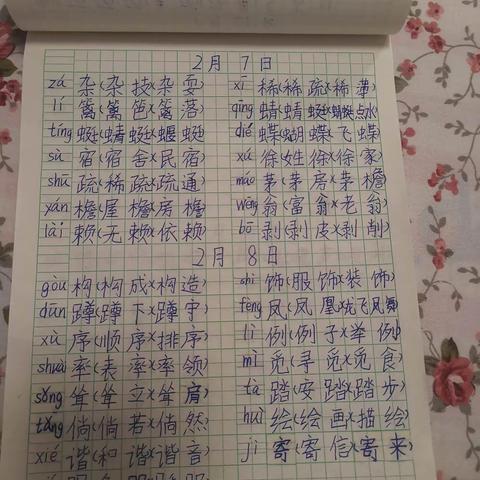 2月7日
zá 杂(杂技)(杂耍) xī 稀(稀疏)(稀薄)
lí 篱(篱笆)(篱落) qīng 蜻(蜻蜓)(蜻蜓点水)
tíng 蜓(蜻蜓)(蝘蜓) dié 蝶(蝴蝶)(飞蝶)
sù 宿(宿舍)(民宿) xú 徐(姓徐)(徐家)
shū 疏(稀疏)(疏通) máo 茅(茅房)(茅檐)
yán 檐(屋檐)(房檐) wēng 翁(富翁)(老翁)
lài 赖(无赖)(依赖) bō 剥(剥皮)(剥削)
2月8日
gòu 构(构成)(构造) shì 饰(服饰)(装饰)
dūn 蹲(蹲下)(蹲守) fèng 凤(凤凰)(龙飞凤舞)
xù 序(顺序)(排序) lì 例(例子)(举例)
shuài 率(表率)(率领) mì 觅(寻觅)(觅食)
sǒng 耸(耸立)(耸肩) tà 踏(安踏)(踏步)
tǎng 倘(倘若)(倘然) huì 绘(绘画)(描绘)
xié 谐(和谐)(谐音) jì 寄(寄信)(寄来)